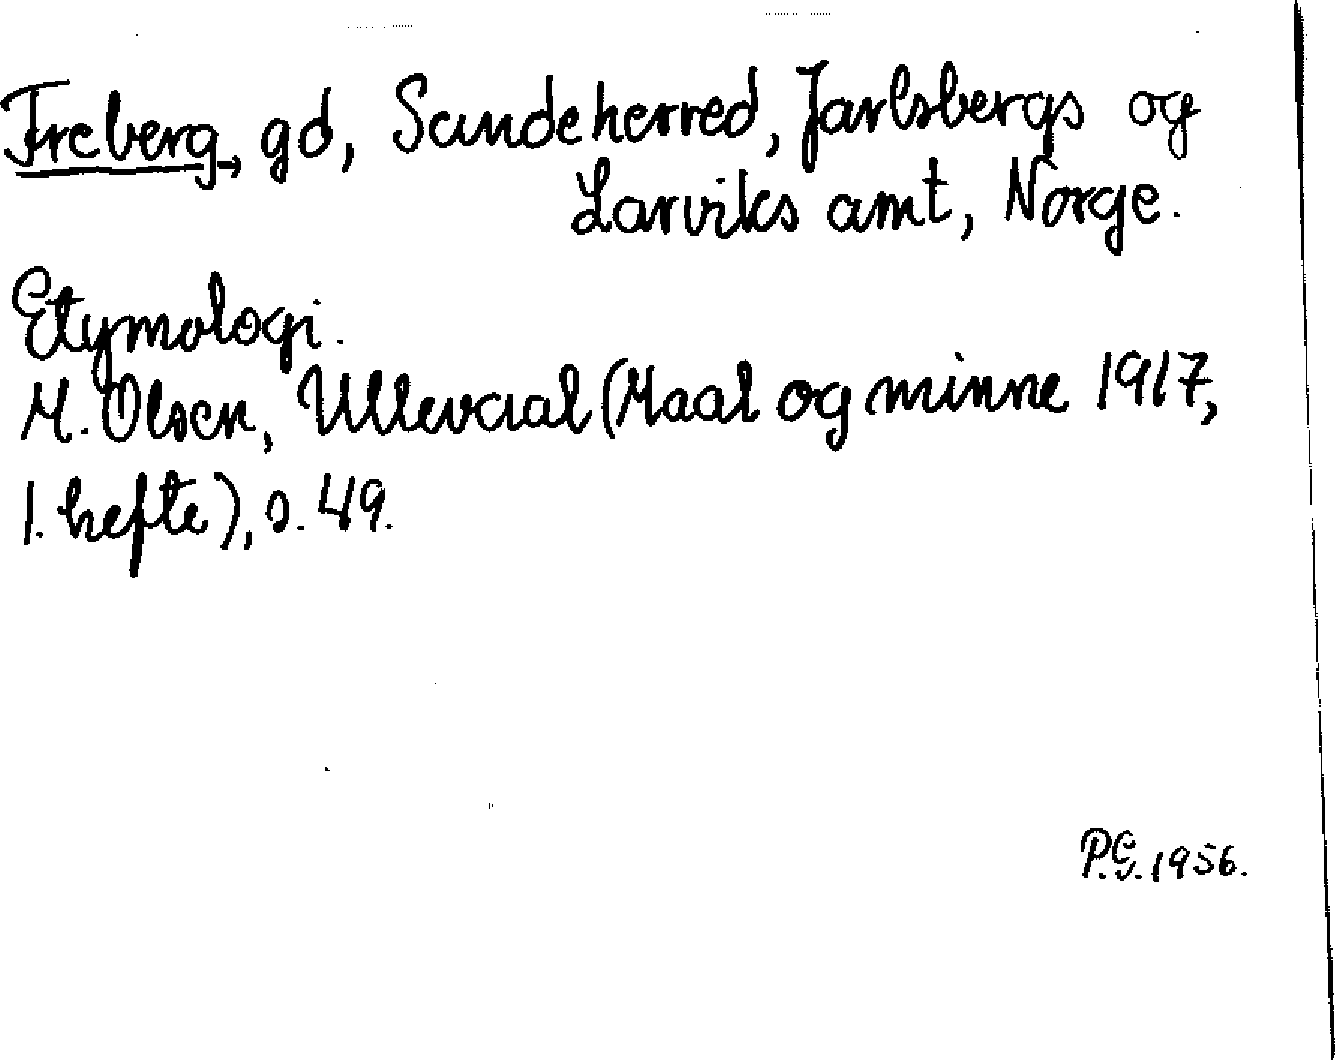 Freberg, gd, Sandeherred, Jarlsbergs og
Larviks amt, Norge.
Etymologi.
M. Olsen, Ullevaal (Maal og minne 1917,
1. hefte), s. 49.
P.G. 1956.